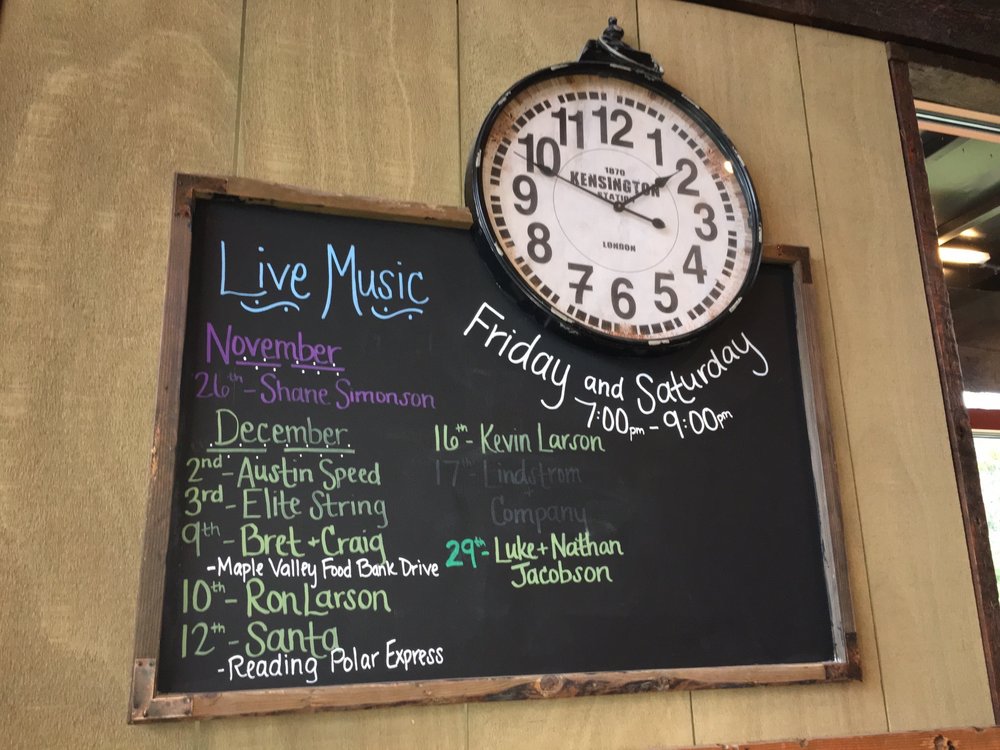 Live Music
November
26th - Shane Simonson
December
2nd - Austin Speed
3rd - Elite String
9th - Bret + Craig
- Maple Valley Food Bank Drive
10th - Ron Larson
12th - Santa
- Reading Polar Express
Friday and Saturday
7:00pm - 9:00pm
16th - Kevin Larson
17th - Lindstrom
+
Company
29th - Luke + Nathan
Jacobson
12
1
2
3
4
5
6
7
8
9
10
11
1870
KENSINGTON
STATION
LONDON